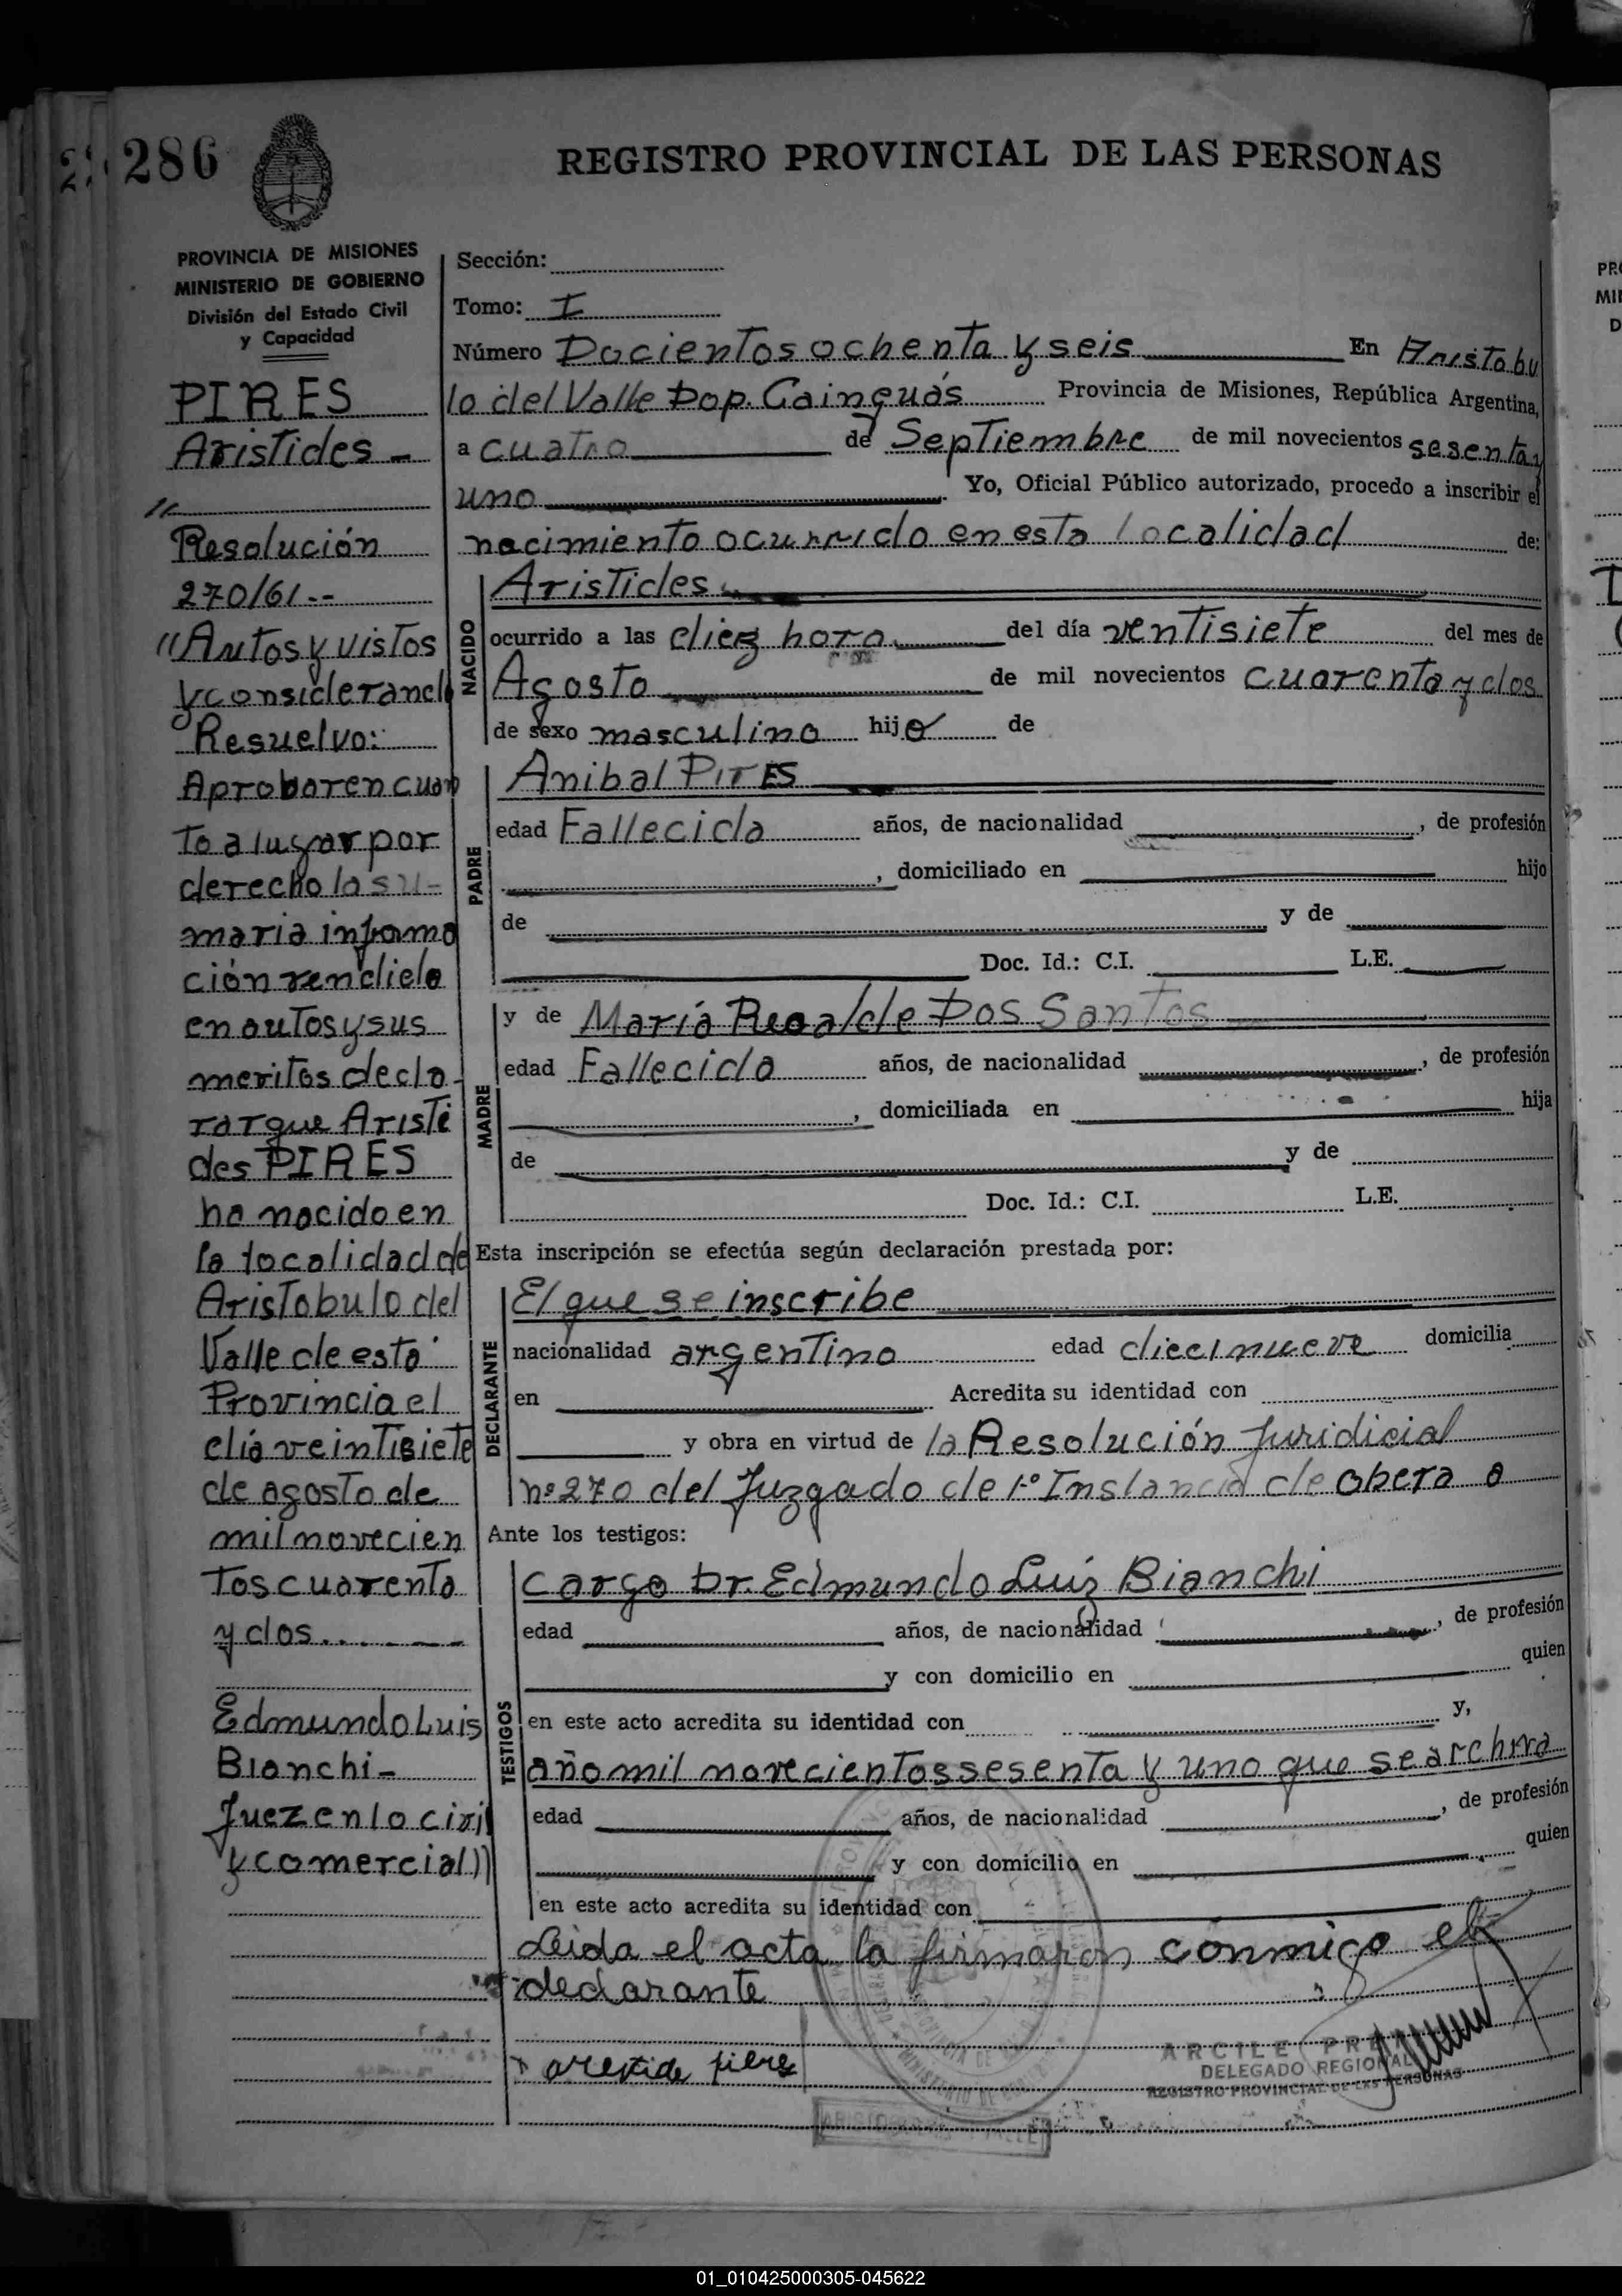 286
REGISTRO PROVINCIAL DE LAS PERSONAS
PROVINCIA DE MISIONES
MINISTERIO DE GOBIERNO
División del Estado Civil
y Capacidad
PIRES
Aristides -
Resolución
270/61 --
"Autos y vistos
y considerand
Resuelvo:
Aprobar en cuan
to a lugar por
derecho la su-
maria informa
ción rendida
en autos y sus
meritos decla-
rar que Aristi
des PIRES
ha nacido en
la localidad de
Aristobulo del
Valle de esta
Provincia el
día veintisiete
de agosto de
mil novecien
tos cuarenta
y dos......---
Edmundo Luis
Bianchi -
Juez en lo civil
y comercial))
Sección:
Tomo: I
Número Docientos ochenta y seis En Aristobu
lo del Valle Dop. Cainguás Provincia de Misiones, República Argentina,
a cuatro de Septiembre de mil novecientos sesenta y
uno. Yo, Oficial Público autorizado, procedo a inscribir el
nacimiento ocurrido en esta localidad de:
NACIDO
Aristides
ocurrido a las diez hora del día ventisiete del mes de
Agosto de mil novecientos cuarenta y dos
de sexo masculino hijo de
PADRE
Anibal PIRES
edad Fallecido años, de nacionalidad , de profesión
, domiciliado en hijo
de y de
Doc. Id.: C.I. L.E.
MADRE
y de María de Dos Santos
edad Fallecida años, de nacionalidad , de profesión
, domiciliada en hija
de y de
Doc. Id.: C.I. L.E.
Esta inscripción se efectúa según declaración prestada por:
DECLARANTE
El que se inscribe
nacionalidad argentino edad diecinueve domicilia
en Acredita su identidad con
y obra en virtud de la Resolución Juridicial
nº 270 del Juzgado de 1º Instancia de Obera a
Ante los testigos:
TESTIGOS
cargo Dr. Edmundo Luiz Bianchi
edad años, de nacionalidad , de profesión
y con domicilio en quien
en este acto acredita su identidad con y,
año mil novecientos sesenta y uno que se archiva
edad años, de nacionalidad , de profesión
y con domicilio en quien
en este acto acredita su identidad con
Leida el acta la firmaron conmigo el
declarante
arestide pires
ARCILE
DELEGADO REGIONAL
REGISTRO PROVINCIAL DE LAS PERSONAS
01_010425000305-045622